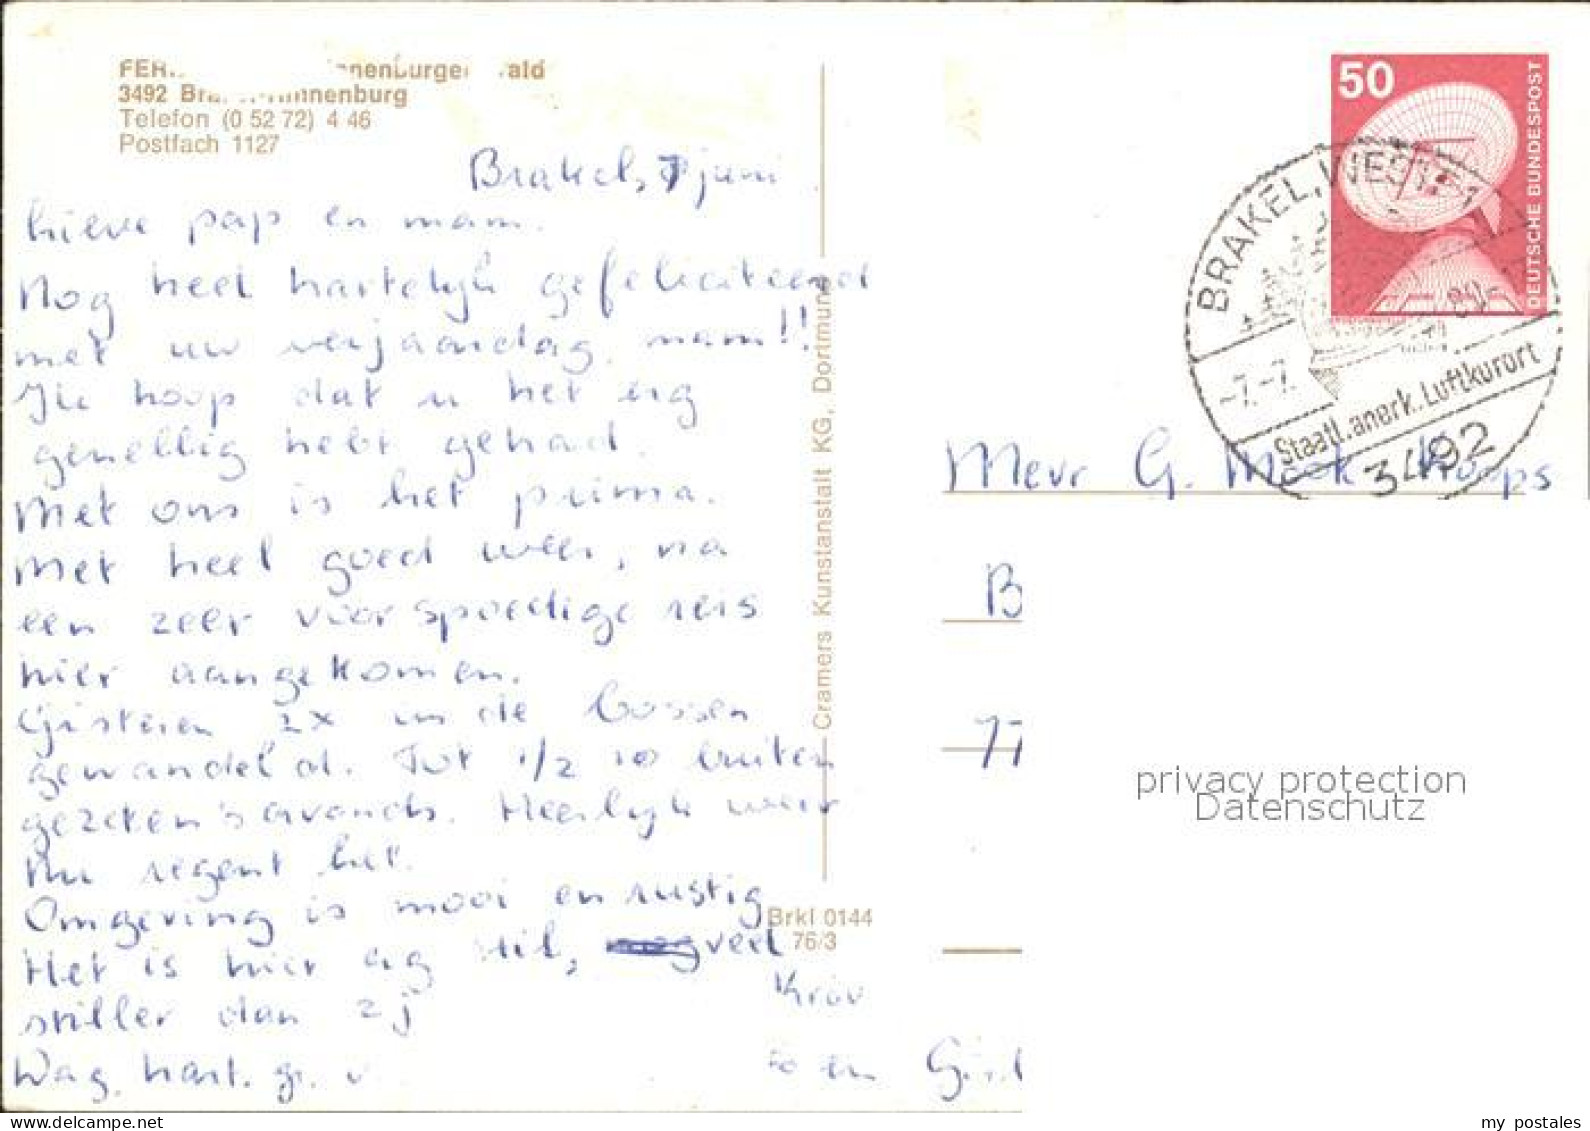 nenburger ald
3492 Bra nnenburg
Telefon (0 52 72) 4 46
Postfach 1127
Brakel, 7 juni
lieve pap en mam.
Nog heel hartelijk gefeliciteerd
met uw verjaardag, mam!!
Ik hoop dat u het erg
gezellig hebt gehad.
Met ons is het prima.
Met heel goed weer, na
een zeer voorspoedige reis
hier aangekomen.
Gisteren 2x in de bossen
gewandeld. Tot 1/2 10 buiten
gezeten 's avonds. Heerlijk weer
Nu regent het.
Omgeving is mooi en rustig
Het is hier erg stil, veel
stiller dan 2 j
Dag. hart. gr. v
Kröv
en
Cramers Kunstanstalt KG, Dortmund
Brkl 0144
76/3
50
DEUTSCHE BUNDESPOST
BRAKEL, WESTF
-7.-7. 80
Staatl. anerk. Luftkurort
3492
Mevr G. Koops
B
77
privacy protection
Datenschutz
my postales